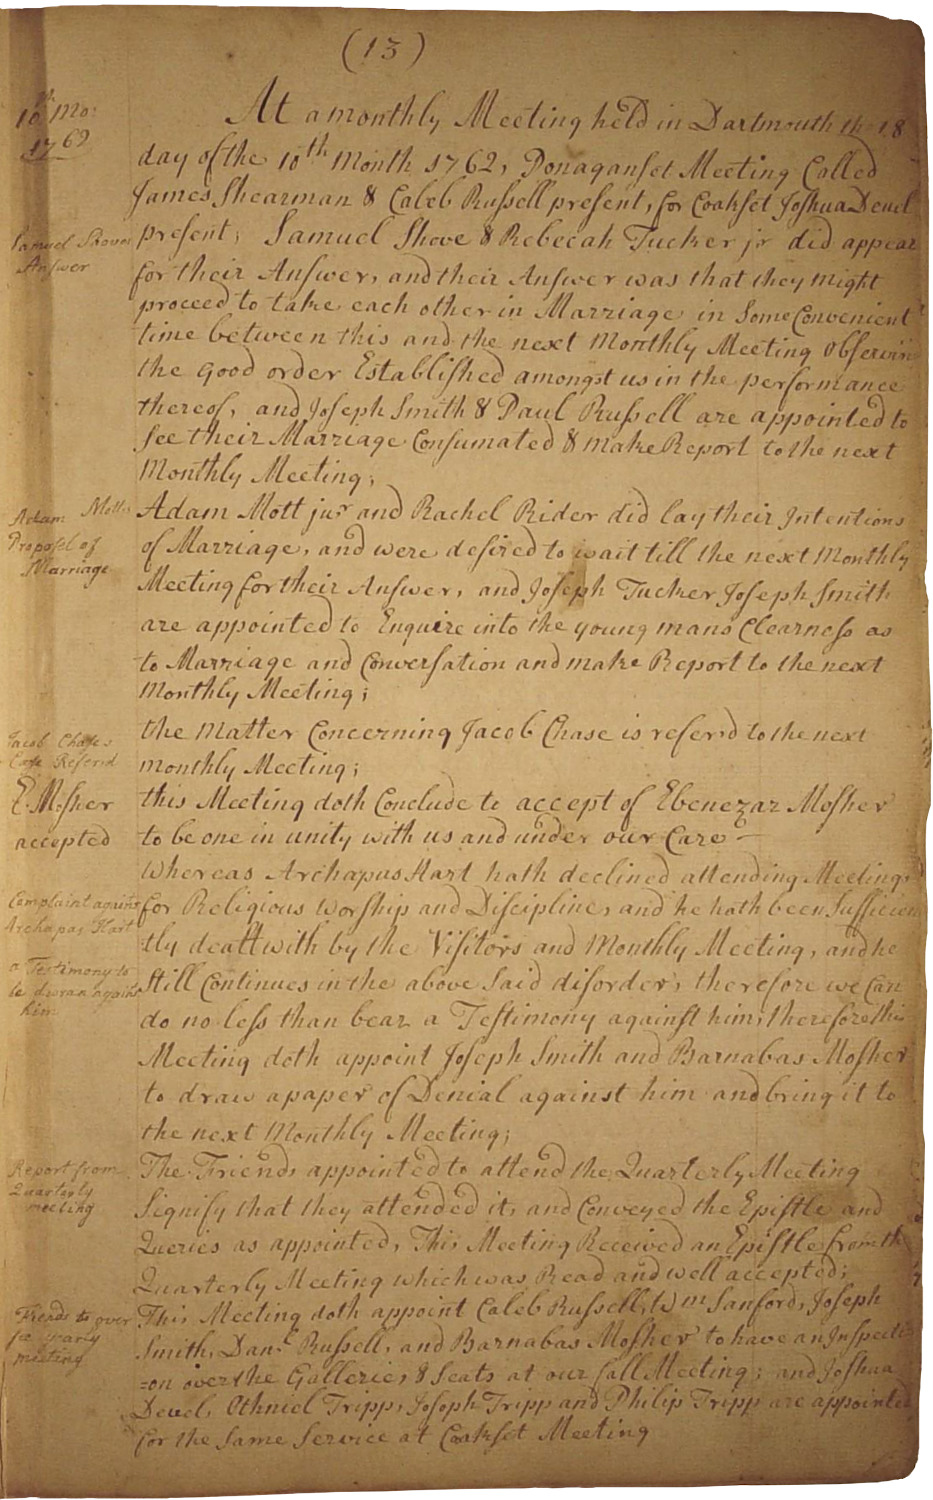 (13)
10th Mo:
1762
At a monthly Meeting held in Dartmouth th 18
day of the 10th Month 1762, Ponaganset Meeting Called
James Shearman & Caleb Russell present, for Coakset Joshua Devel
Samuel Shoves
Answer
present; Samuel Shove & Rebecah Tucker jr did appear
for their Answer, and their Answer was that they might
proceed to take each other in Marriage in Some Convenient
time between this and the next Monthly Meeting Observin
the good order Established amongst us in the performance
thereof, and Joseph Smith & Paul Russell are appointed to
See their Marriage Consumated & make Report to the next
Monthly Meeting;
Adam Motts
Proposel of
Marriage
Adam Mott jur and Rachel Rider did lay their Intentions
of Marriage, and were desired to wait till the next Monthly
Meeting for their Answer, and Joseph Tucker Joseph Smith
are appointed to Enquire into the young mans Clearness as
to Marriage and Conversation and make Report to the next
Monthly Meeting;
Jacob Chases
Case Referd
the Matter Concerning Jacob Chase is referd to the next
monthly Meeting;
E. Mosher
accepted
this Meeting doth Conclude to accept of Ebenezar Mosher
to be one in unity with us and under our Care
Complaint against
Archapas Hart
Whereas Archapus Hart hath declined attending Meetings
for Religious Worship and Discipline, and he hath been Sufficien
tly dealt with by the Visitors and Monthly Meeting, and he
a Testimony to
be drawn against
him
Still Continues in the above Said disorder, therefore we Can
do no less than bear a Testimony against him, therefore this
Meeting doth appoint Joseph Smith and Barnabas Mosher
to draw a paper of Denial against him and bring it to
the next Monthly Meeting;
Report from
Quarterly
meeting
The Friends appointed to attend the Quarterly Meeting
Signify that they attended it, and Conveyed the Epistle and
Queries as appointed, This Meeting Received an Epistle from th
Quarterly Meeting which was Read and well accepted;
Frends to over
se yearly
meeting
This Meeting doth appoint Caleb Russell, Wm Sanford, Joseph
Smith, Danl Russell, and Barnabas Mosher to have an Inspecti
=on over the Galleries & Seats at our fall Meeting; and Joshua
Devel, Othniel Tripp, Joseph Tripp and Philip Tripp are appointed
for the Same Service at Coakset Meeting